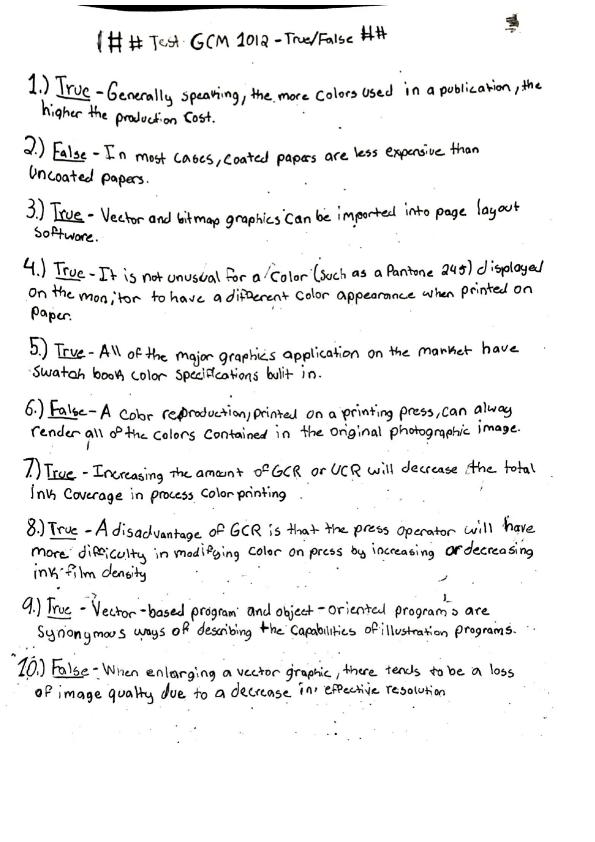 1## # Test GCM 1012 - True/False ##
1.) True - Generally speaking, the more colors used in a publication, the
higher the production cost.
2.) False - In most cases, coated papers are less expensive than
Uncoated papers.
3.) True - Vector and bitmap graphics can be imported into page layout
Software.
4.) True - It is not unusual for a color (such as a Pantone 245) displayed
on the monitor to have a different color appearance when printed on
Paper.
5.) True - All of the major graphics application on the market have
Swatch book color specifications bulit in.
6.) False - A color reproduction, printed on a printing press, can alway
render all of the colors contained in the original photographic image.
7.) True - Increasing the amount of GCR or UCR will decrease the total
ink coverage in process color printing
8.) True - A disadvantage of GCR is that the press operator will have
more difficulty in modifying color on press by increasing or decreasing
ink film density
9.) True - Vector-based program and object-oriented programs are
Synonymous ways of describing the capabilities of illustration programs.
10.) False - When enlarging a vector graphic, there tends to be a loss
of image qualty due to a decrease in effective resolution